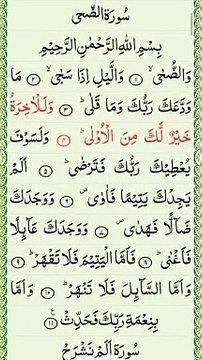 سُورَةُ الضُّحٰى
بِسْمِ اللّٰهِ الرَّحْمٰنِ الرَّحِيْمِ
وَالضُّحٰى ۙ﴿۱﴾ وَالَّيْلِ اِذَا سَجٰى ۙ﴿۲﴾ مَا
وَدَّعَكَ رَبُّكَ وَمَا قَلٰى ؕ﴿۳﴾ وَلَلْاٰخِرَةُ
خَيْرٌ لَّكَ مِنَ الْاُوْلٰى ؕ﴿۴﴾ وَلَسَوْفَ
يُعْطِيْكَ رَبُّكَ فَتَرْضٰى ؕ﴿۵﴾ اَلَمْ
يَجِدْكَ يَتِيْمًا فَاٰوٰى ۪﴿۶﴾ وَوَجَدَكَ
ضَآلًّا فَهَدٰى ۪﴿۷﴾ وَوَجَدَكَ عَآئِلًا
فَاَغْنٰى ؕ﴿۸﴾ فَاَمَّا الْيَتِيْمَ فَلَا تَقْهَرْ ؕ﴿۹﴾
وَاَمَّا السَّآئِلَ فَلَا تَنْهَرْ ؕ﴿۱۰﴾ وَاَمَّا
بِنِعْمَةِ رَبِّكَ فَحَدِّثْ ﴿۱۱﴾
سُورَةُ اَلَمْ نَشْرَحْ